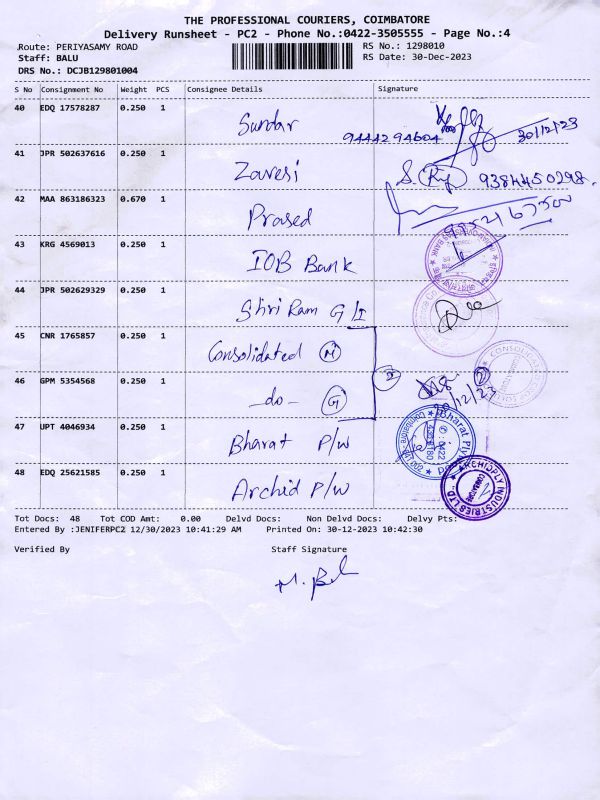 THE PROFESSIONAL COURIERS, COIMBATORE
Delivery Runsheet - PC2 - Phone No.:0422-3505555 - Page No.:4
Route: PERIYASAMY ROAD RS No.: 1298010
Staff: BALU RS Date: 30-Dec-2023
DRS No.: DCJB129801004
S No Consignment No Weight PCS Consignee Details Signature
40 EDQ 17578287 0.250 1 Sundar 9444294604 30/12/23
41 JPR 502637616 0.250 1 Zaveri S. 9384450298.
42 MAA 863186323 0.670 1 Prased
43 KRG 4569013 0.250 1 IOB Bank
44 JPR 502629329 0.250 1 Shri Ram G/I
45 CNR 1765857 0.250 1 Consolidated M
46 GPM 5354568 0.250 1 -do- G 2 2 30/12/23
47 UPT 4046934 0.250 1 Bharat P/W Bharat Ply
48 EDQ 25621585 0.250 1 Archid P/W ARCHIDPLY INDUSTRIES LTD
Tot Docs: 48 Tot COD Amt: 0.00 Delvd Docs: Non Delvd Docs: Delvy Pts:
Entered By :JENIFERPC2 12/30/2023 10:41:29 AM Printed On: 30-12-2023 10:42:30
Verified By Staff Signature